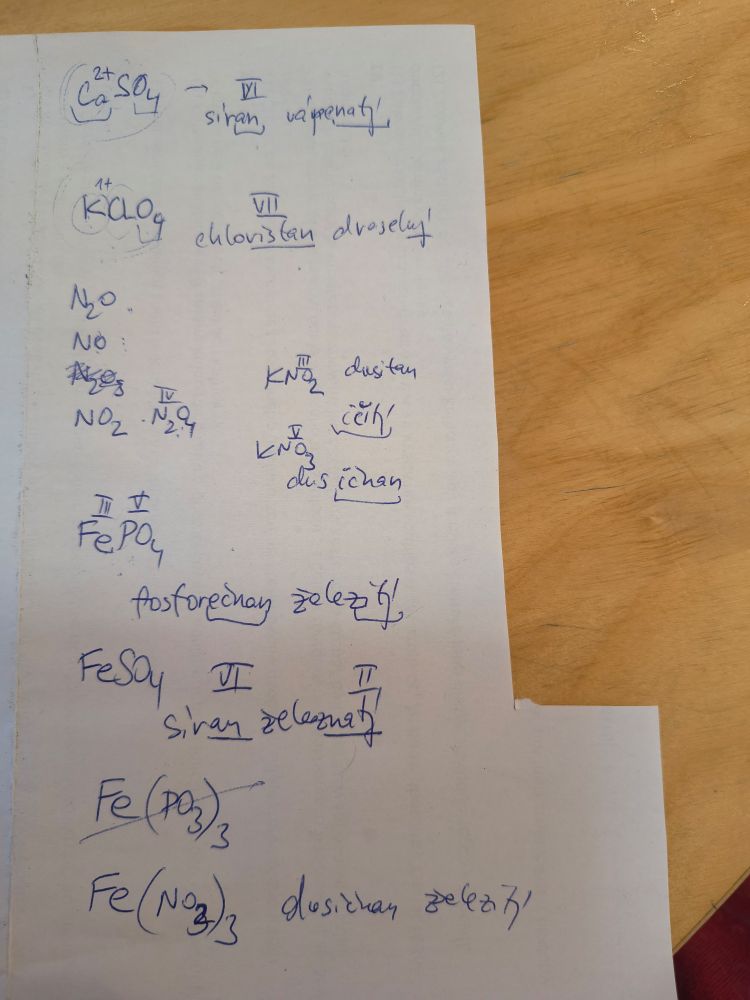 Ca²⁺SO₄ → VI
síran vápenatý
K¹⁺ClO₄ VII
chloristan draselný
N₂O
NO
NO₂ N₂O₄ IV
KNO₂ III dusitan
ičitý
KNO₃ V
dusičnan
III V
FePO₄
fosforečnan železitý
FeSO₄ VI II
síran železnatý
Fe(PO₃)₃
Fe(NO₃)₃ dusičnan železitý